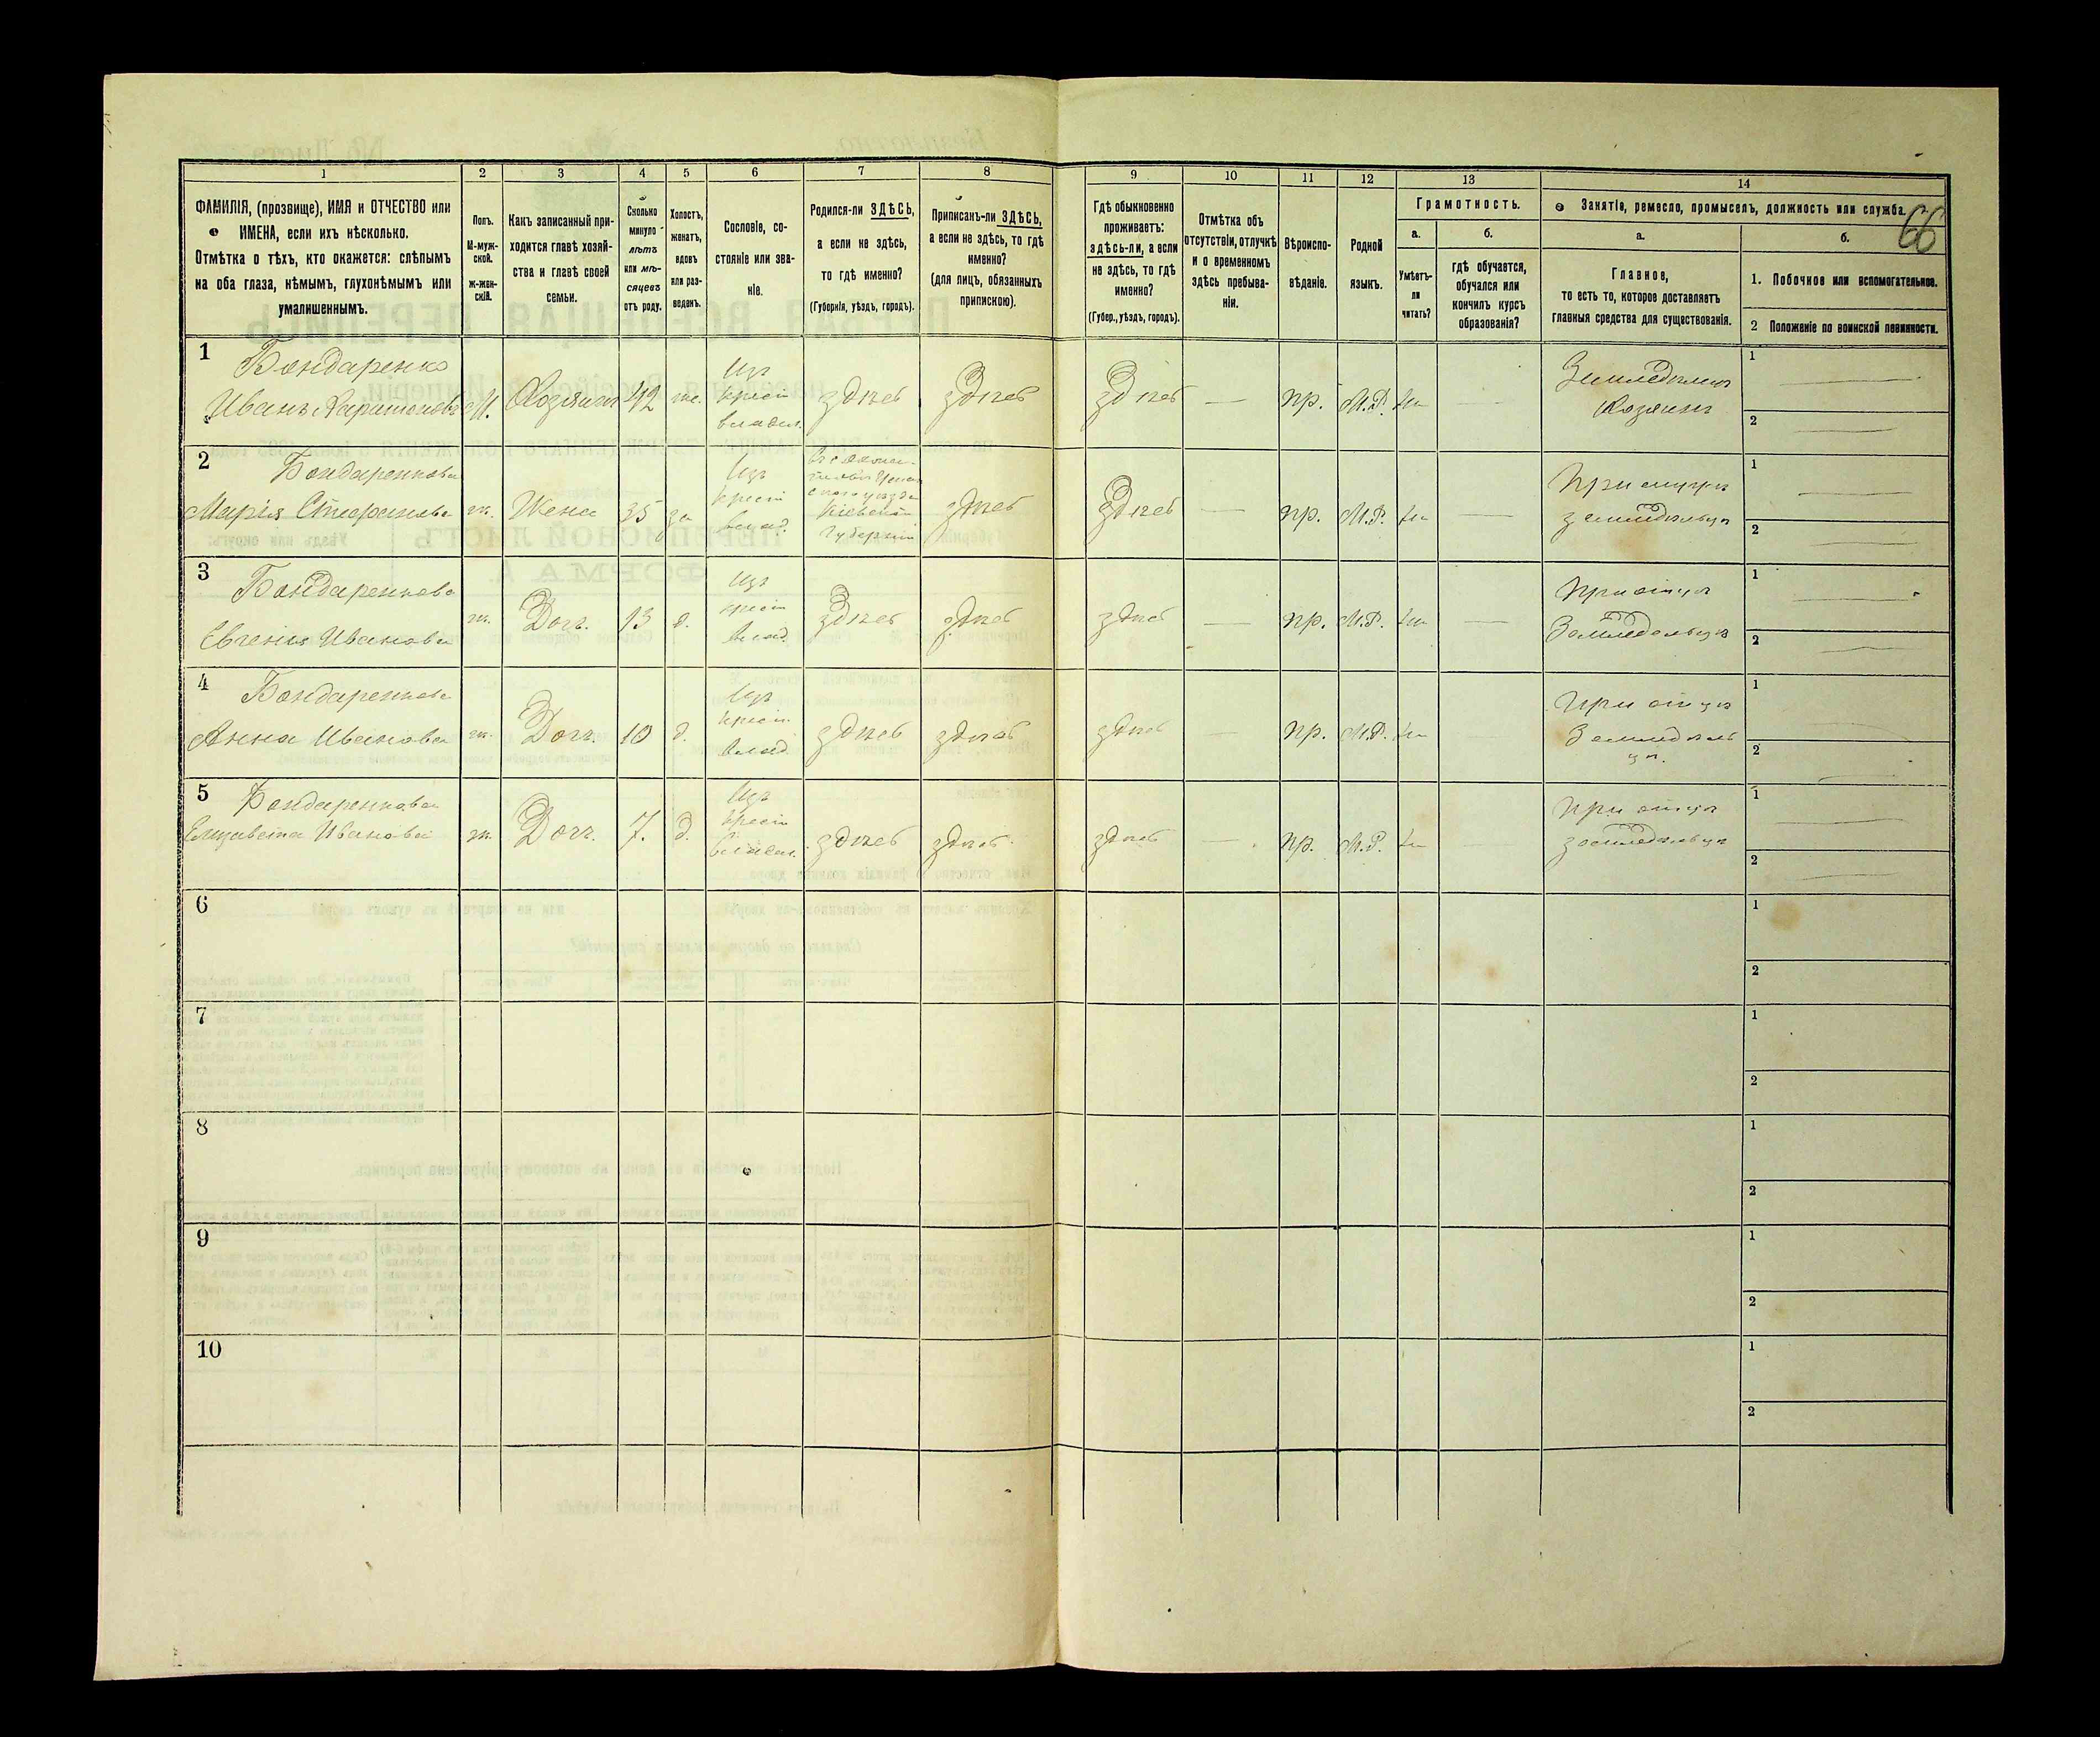 1 2 3 4 5 6 7 8 9 10 11 12 13 14
ФАМИЛІЯ, (прозвище), ИМЯ и ОТЧЕСТВО или
ИМЕНА, если ихъ нѣсколько.
Отмѣтка о тѣхъ, кто окажется: слѣпымъ
на оба глаза, нѣмымъ, глухонѣмымъ или
умалишеннымъ.
Полъ.
М-муж-
ской.
Ж-жен-
скій.
Какъ записанный при-
ходится главѣ хозяй-
ства и главѣ своей
семьи.
Сколько
минуло
лѣтъ
или мѣ-
сяцевъ
отъ роду.
Холостъ,
женатъ,
вдовъ
или раз-
веденъ.
Сословіе, со-
стояніе или зва-
ніе.
Родился-ли ЗДѢСЬ,
а если не здѣсь,
то гдѣ именно?
(Губернія, уѣздъ, городъ).
Приписанъ-ли ЗДѢСЬ,
а если не здѣсь, то гдѣ
именно?
(для лицъ, обязанныхъ
припискою).
Гдѣ обыкновенно
проживаетъ:
здѣсь-ли, а если
не здѣсь, то гдѣ
именно?
(Губер., уѣздъ, городъ).
Отмѣтка объ
отсутствіи, отлучкѣ
и о временномъ
здѣсь пребыва-
ніи.
Вѣроиспо-
вѣданіе.
Родной
языкъ.
Грамотность.
а.
Умѣетъ-
ли
читать?
б.
гдѣ обучается,
обучался или
кончилъ курсъ
образованія?
Занятіе, ремесло, промыселъ, должность или служба.
66
а.
Главное,
то есть то, которое доставляетъ
главныя средства для существованія.
б.
1. Побочное или вспомогательное.
2 Положеніе по воинской повинности.
1 Бондаренко
Иванъ М. Хозяинъ 42 же.
Изъ
крест
владел.
здѣсь здѣсь здѣсь — пр. М.Р. —
Земледѣлец
Хозяинъ
1
2
2 Бондаренкова
Марія ж. Жена 35 за
Изъ
крест
влад.
Кіевской
Губерніи
здѣсь здѣсь — пр. М.Р. —
При мужѣ
земледѣльцѣ
1
2
3 Бондаренкова
Евгенія Иванова ж. Дочь. 13 д.
Изъ
крест
влад.
здѣсь здѣсь здѣсь — пр. М.Р. —
При отцѣ
Земледѣльцѣ
1
2
4 Бондаренкова
Анна Иванова ж. Дочь. 10 д.
Изъ
крест.
влад.
здѣсь здѣсь здѣсь — пр. М.Р. —
При отцѣ
Земледѣль
цѣ.
1
2
5 Бондаренкова
Елизавета Иванова ж. Дочь. 7. д.
Изъ
крест
владел.
здѣсь здѣсь здѣсь — пр. М.Р. —
При отцѣ
земледѣльцѣ
1
2
6
1
2
7
1
2
8
1
2
9
1
2
10
1
2